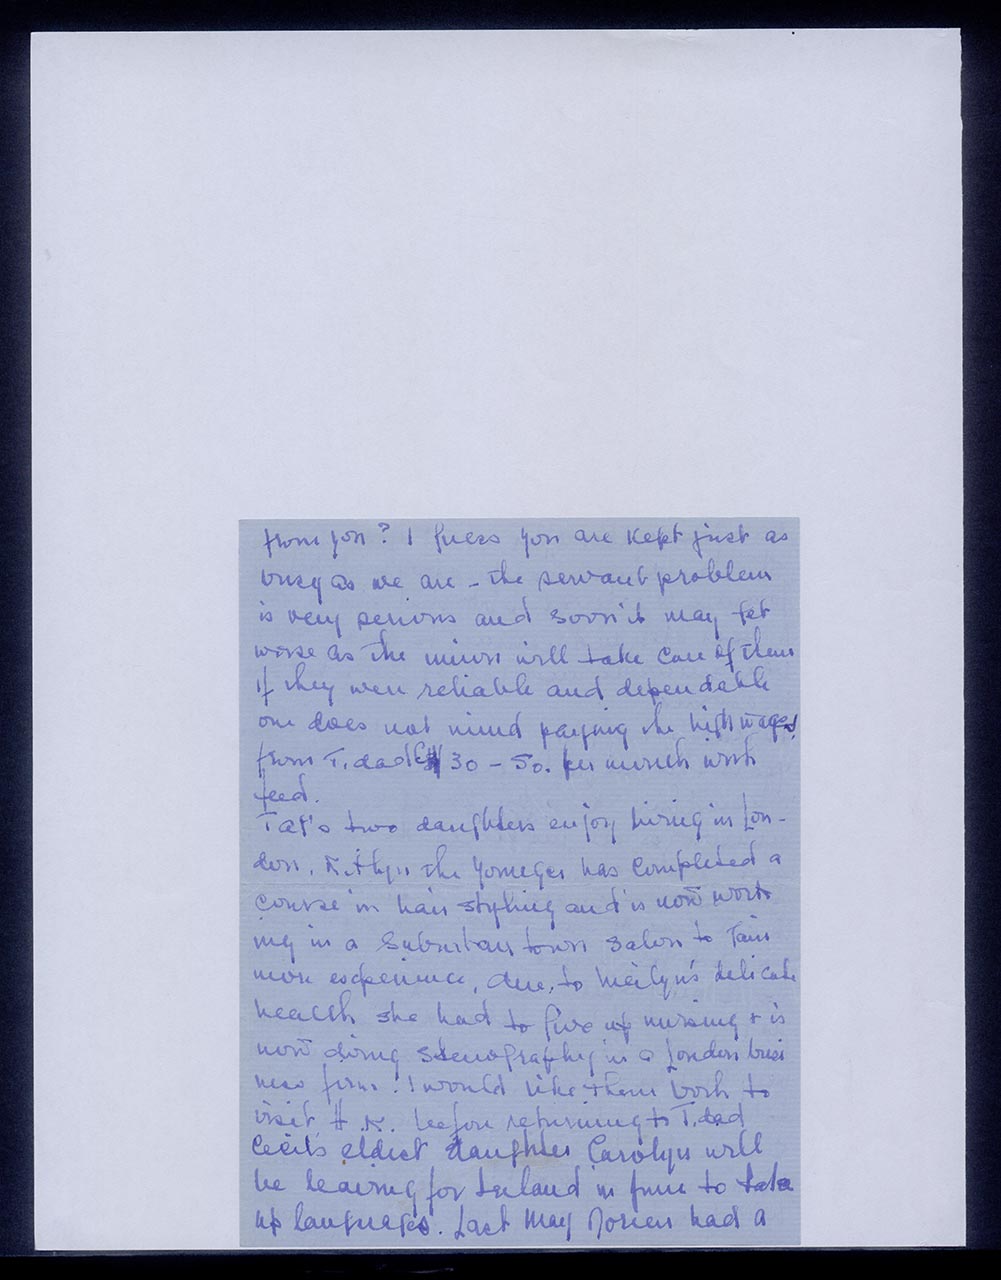 from you? I guess you are kept just as
busy as we are - the servant problem
is very serious and soon it may get
worse as the will take care of them
if they were reliable and dependable
one does not mind paying the high wages
from T.dad $30 - 50. per month with
feed.
Tat's two daughters enjoy living in Lon-
don. the younger has completed a
course in hair styling and is now work
ing in a suburban town salon to gain
more experience, due, to delicate
health she had to give up nursing + is
now doing stenography in a London busi
ness firm. I would like them both to
visit H.K. before returning to T.dad
Cecil's eldest daughter Carolyn will
be leaving for Ireland in June to take
up languages. Last May had a